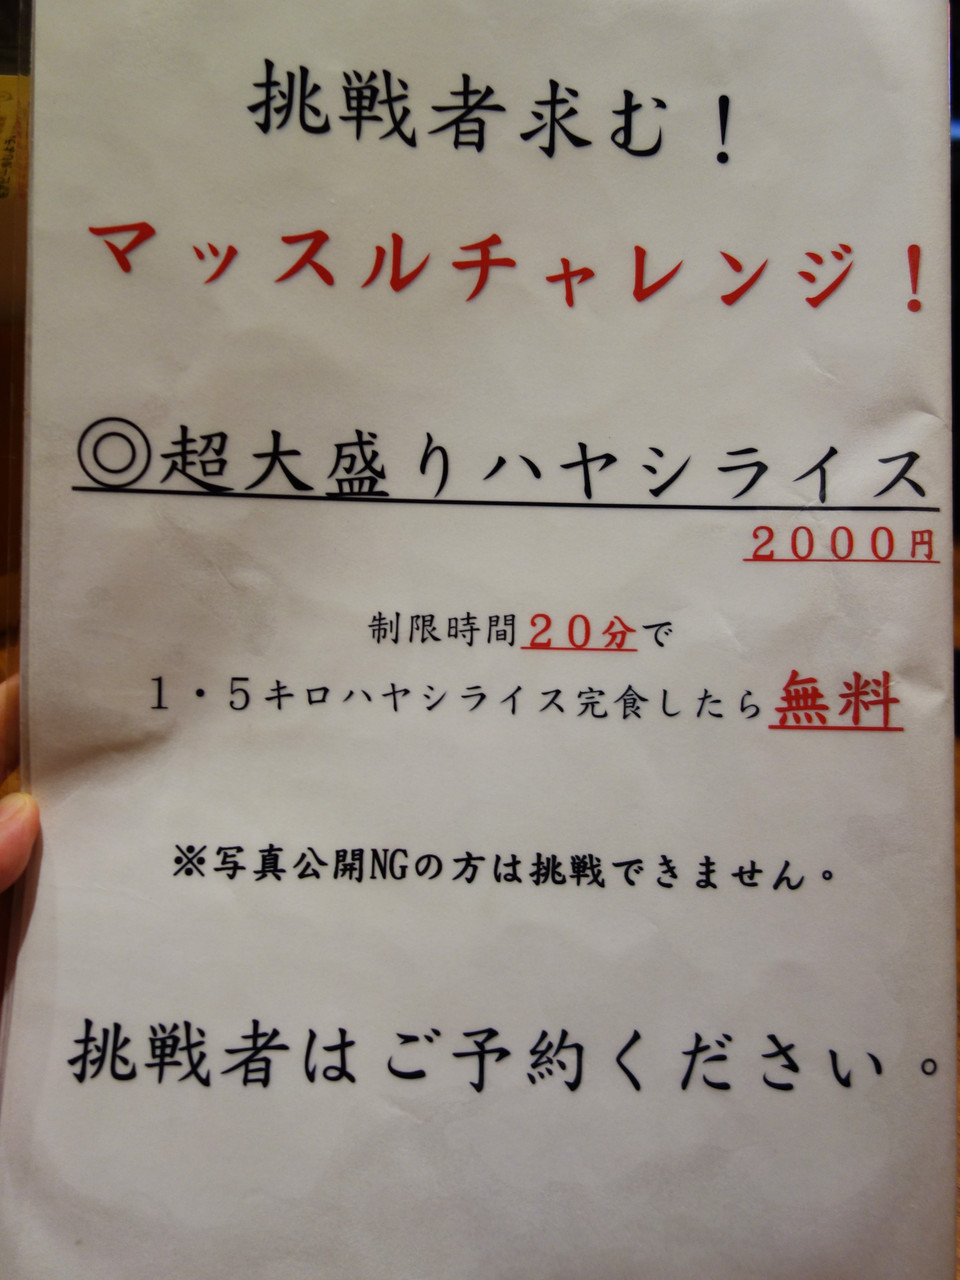 挑戦者求む！
マッスルチャレンジ！
◎超大盛りハヤシライス
２０００円
制限時間２０分で
１・５キロハヤシライス完食したら無料
※写真公開NGの方は挑戦できません。
挑戦者はご予約ください。